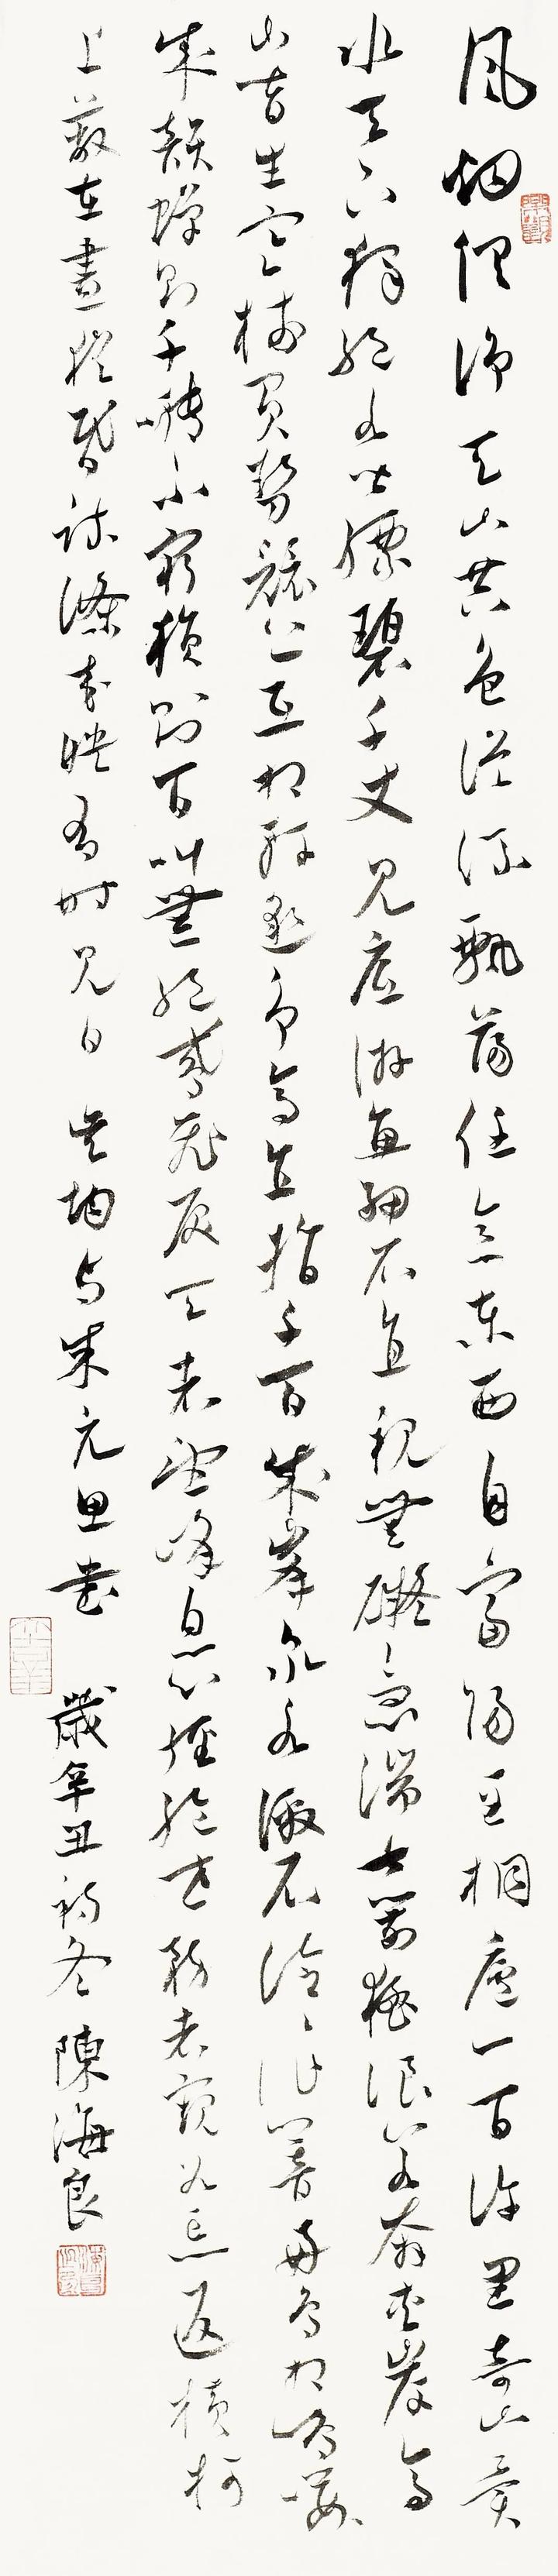 風烟俱淨天山共色從流飄蕩任意東西自富陽至桐廬一百許里奇山異
水天下獨絕水皆縹碧千丈見底游魚細石直視無礙急湍甚箭猛浪若奔夾岸高
山皆生寒樹負勢競上互相軒邈爭高直指千百成峯泉水激石泠〻作響好鳥相鳴嚶〻
成韻蟬則千囀不窮猿則百叫無絕鳶飛戾天者望峰息心經綸世務者窺谷忘返橫柯
上蔽在晝猶昏疎條交映有時見日 吳均與朱元思書 歲辛丑初冬 陳海良